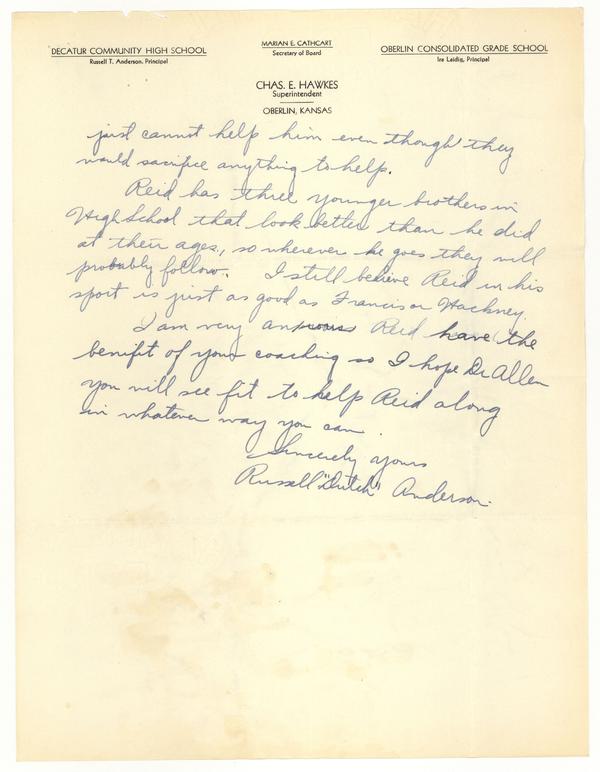 DECATUR COMMUNITY HIGH SCHOOL
Russell T. Anderson, Principal
MARIAN E. CATHCART
Secretary of Board
OBERLIN CONSOLIDATED GRADE SCHOOL
Ira Laidig, Principal
CHAS. E. HAWKES
Superintendent
OBERLIN, KANSAS
just cannot help him even though they
would sacrifice anything to help.
Reid has three younger brothers in
High School that look better than he did
at their ages, so wherever he goes they will
probably follow. I still believe Reid in his
sport is just as good as Francis or Hackney.
I am very anxious Reid have the
benifit of your coaching so I hope Dr Allen
you will see fit to help Reid along
in whatever way you can.
Sincerely yours
Russell "Dutch" Anderson.